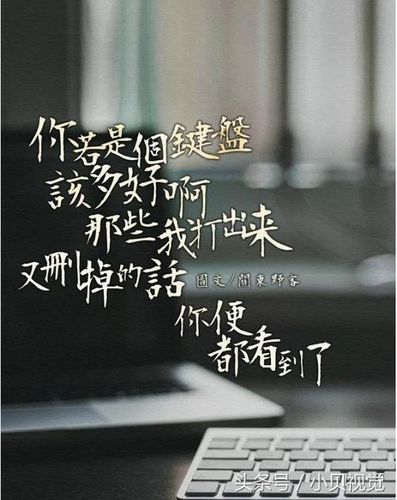 你若是個鍵盤
該多好啊
那些我打出来
又刪掉的話
圖文/關東野客
你便
都看到了
头条号 / 小贝视觉